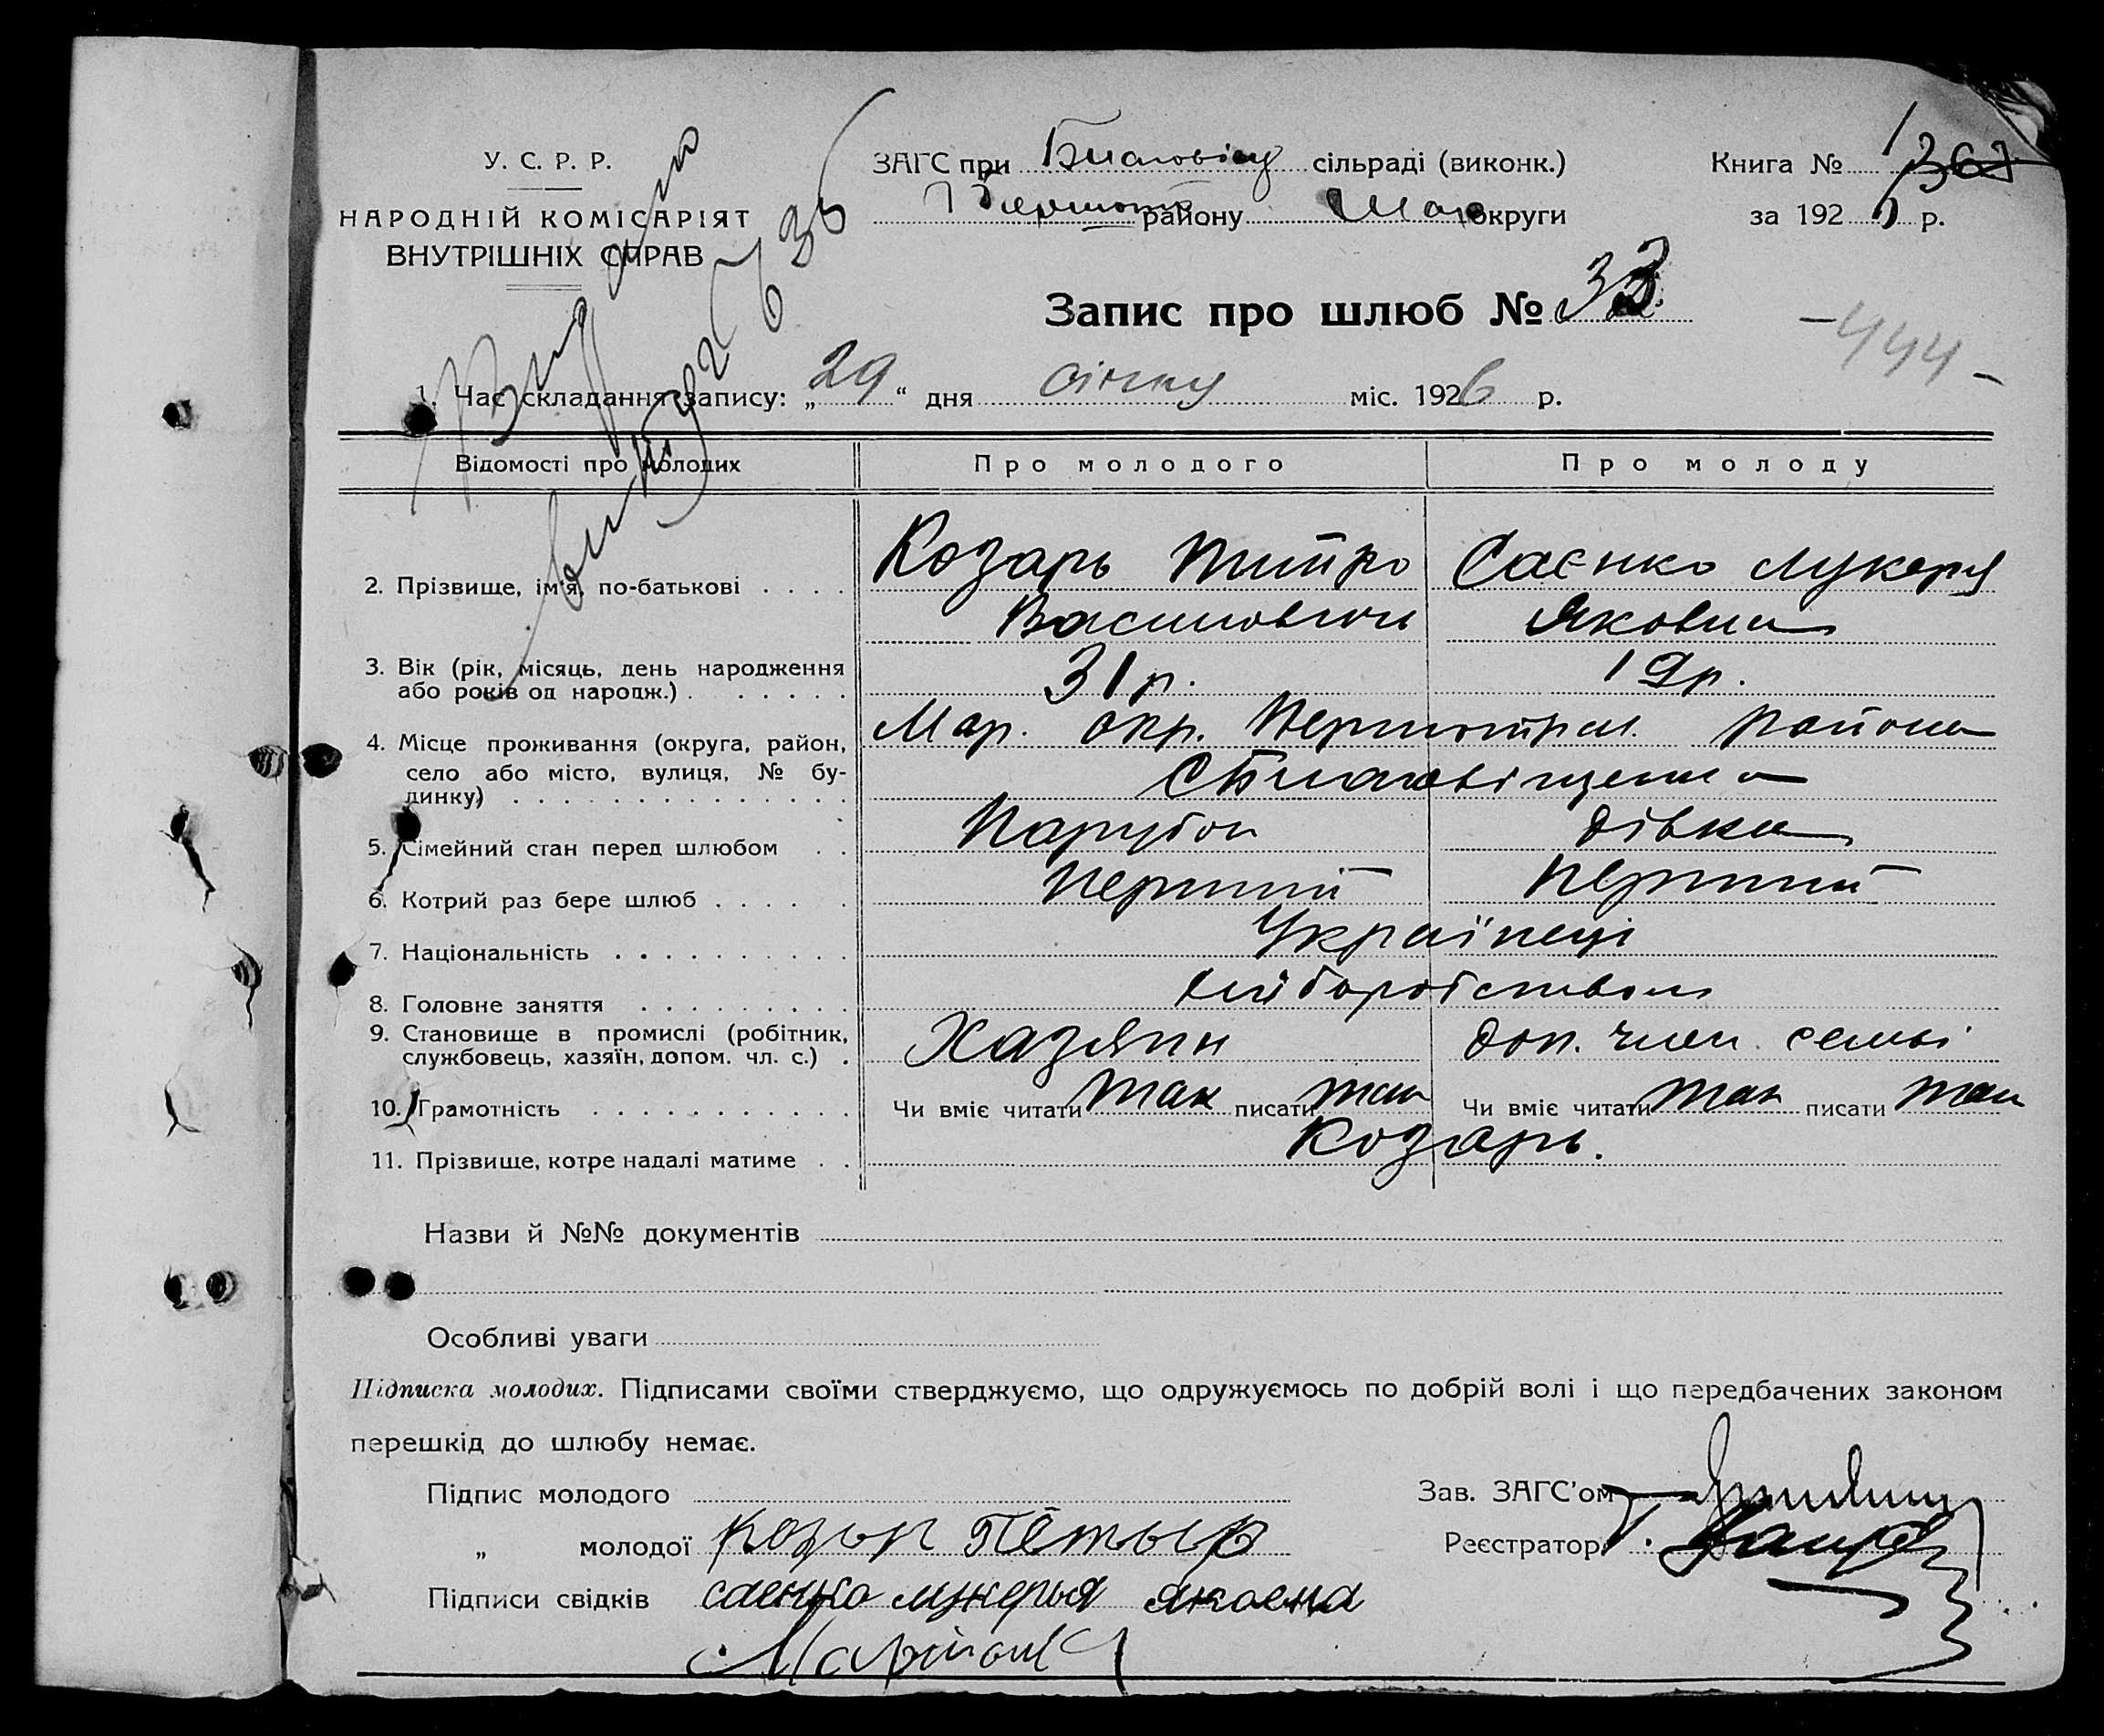 У. С. Р. Р.
НАРОДНІЙ КОМІСАРІЯТ
ВНУТРІШНІХ СПРАВ
ЗАГС при сільраді (виконк.)
району Мар округи
Книга № 1
за 192 р.
Запис про шлюб № 33
-444-
1. Час складання запису: „29" дня січню міс. 1926 р.
Відомості про молодих Про молодого Про молоду
2. Прізвище, ім'я, по-батькові . . . . Козарь Саєнко Лукеря
Василович Яковна
3. Вік (рік, місяць, день народження
або років од народж.) . . . . . . 31 р. 19 р.
4. Місце проживання (округа, район, Мар. окр. района
село або місто, вулиця, № бу-
динку) . . . . . . . . . . . . . .
5. Сімейний стан перед шлюбом . . Парубок дівка
6. Котрий раз бере шлюб . . . . . Перший Перший
7. Національність . . . . . . . . . . Українці
8. Головне заняття . . . . . . . . . хліборобством
9. Становище в промислі (робітник,
службовець, хазяїн, допом. чл. с.) . Хазяин доп. член семьі
10. Грамотність . . . . . . . . . . . Чи вміє читати так писати так Чи вміє читати так писати так
11. Прізвище, котре надалі матиме . . Козарь.
Назви й №№ документів
Особливі уваги
Підписка молодих. Підписами своїми стверджуємо, що одружуємось по добрій волі і що передбачених законом
перешкід до шлюбу немає.
Підпис молодого Зав. ЗАГС'ом
„ молодої Реєстратор
Підписи свідків саенко лукерья